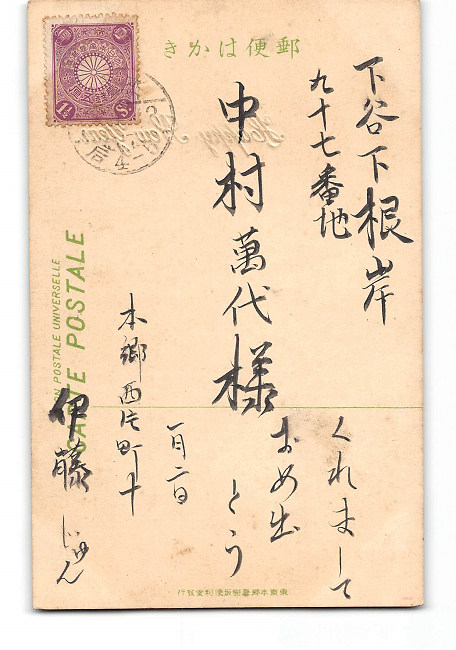 郵便はかき
下谷下根岸
九十七番地
中村萬代様
くれまして
おめ出
とう
一月二日
本郷西片町十
伊藤じゅん
UNION POSTALE UNIVERSELLE
CARTE POSTALE
Happy New Year
1½ Sn